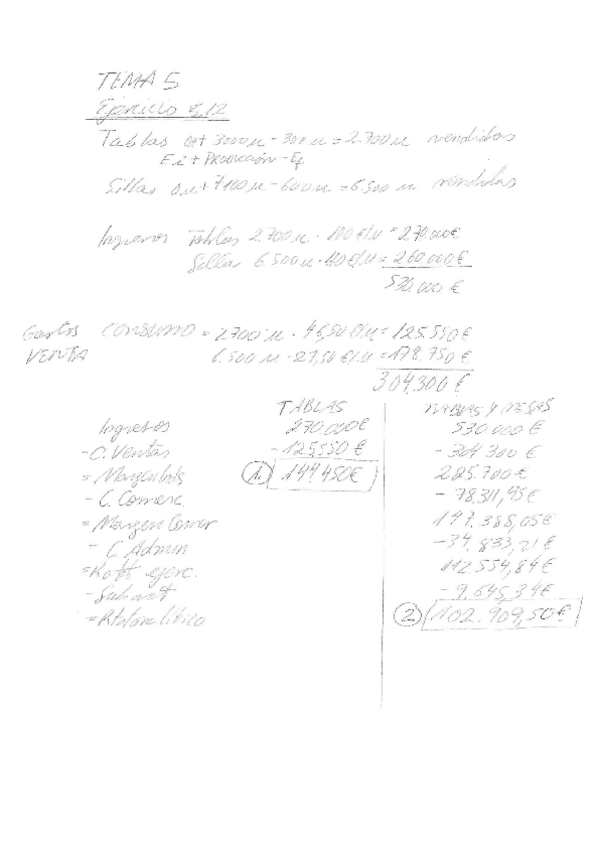 TEMA 5
Ejercicio 5.12
Tablas 0u + 3000 u - 300 u = 2.700 u vendidas
Ei + Producción - Ef
Sillas 0 u + 7100 u - 600 u = 6.500 u vendidas
Ingresos Tablas 2.700 u · 100 €/u = 270.000€
Sillas 6.500 u · 40 €/u = 260.000 €
530.000 €
Gastos CONSUMO = 2700 u · 46,50 €/u = 125.550 €
VENTA 6.500 u · 27,50 €/u = 178.750 €
304.300 €
TABLAS TABLAS Y MESAS
Ingresos 270.000€ 530.000 €
- C. Ventas - 125.550 € - 304.300 €
= Margen Ind. 1. 144.450€ 225.700 €
- C. Comerc. - 78.311,95€
= Margen Comer 147.388,05€
- C. Admin - 34.833,21€
= Rdo ejerc. 112.554,84€
- Subact - 9.645,34€
= Rdo analítico 2. 102.909,50€